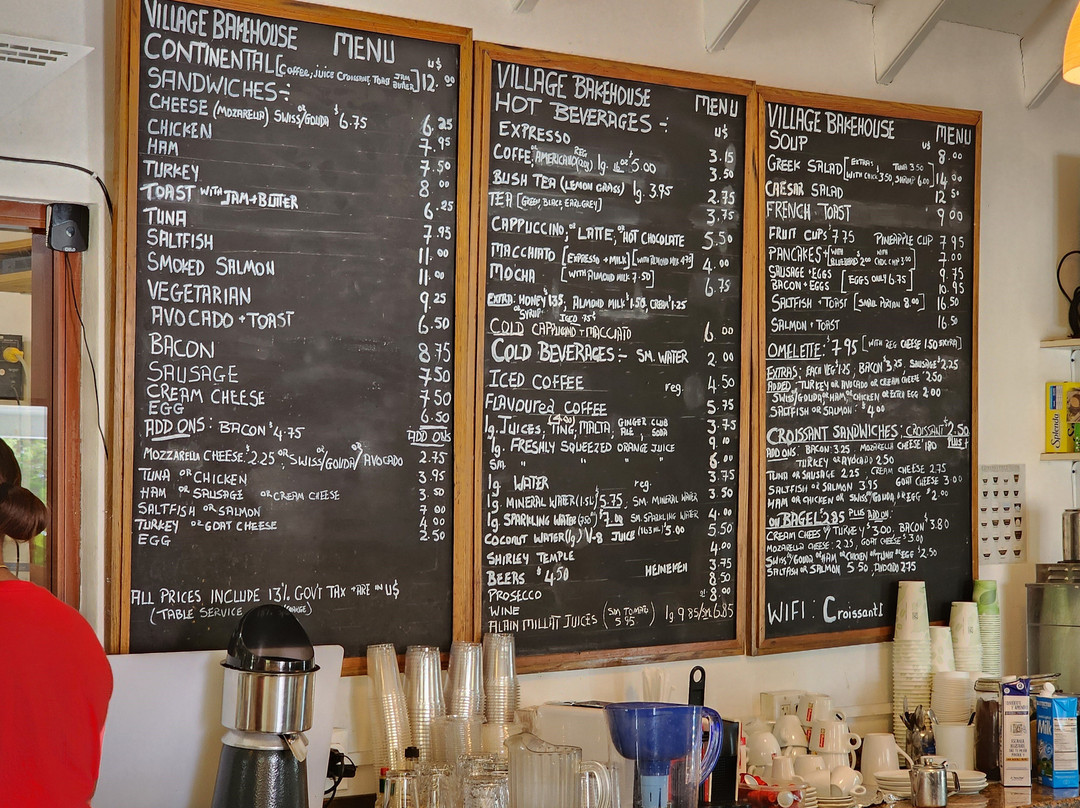 VILLAGE BAKEHOUSE MENU
CONTINENTAL [Coffee, Juice Croissant, Toast JAM BUTTER] U$ 12.00
SANDWICHES:-
CHEESE (MOZARELLA) OR SWISS/GOUDA $6.75 6.25
CHICKEN 7.95
HAM 7.50
TURKEY 8.00
TOAST WITH JAM+BUTTER 6.25
TUNA 7.95
SALTFISH 11.00
SMOKED SALMON 11.00
VEGETARIAN 9.25
AVOCADO + TOAST 6.50
BACON 8.75
SAUSAGE 7.50
CREAM CHEESE 7.50
EGG 6.50
ADD ONS: BACON $4.75 ADD ONS
MOZZARELLA CHEESE $2.25 OR SWISS/GOUDA/ OR AVOCADO 2.75
TUNA OR CHICKEN 3.95
HAM OR SAUSAGE OR CREAM CHEESE 3.50
SALTFISH OR SALMON 7.00
TURKEY OR GOAT CHEESE 4.00
EGG 2.50
ALL PRICES INCLUDE 13% GOV'T TAX + ARE IN U$
(TABLE SERVICE
VILLAGE BAKEHOUSE MENU
HOT BEVERAGES:- U$
EXPRESSO 3.15
COFFE, OR AMERICANO REG lg. 16 OZ $5.00 3.50
BUSH TEA (LEMON GRASS) lg. 3.95 2.75
TEA [GREEN, BLACK, EARL GREY] 3.75
CAPPUCCINO, OR LATTE, OR HOT CHOCOLATE 5.50
MACCHIATO [EXPRESSO + MILK] [WITH ALMOND MILK 4.75] 4.00
MOCHA [WITH ALMOND MILK 7.50] 6.75
EXTRA: HONEY 1.35, ALMOND MILK $1.50, CREAM $1.25
SYRUP ICED .75¢
COLD CAPPUCINO + MACCIATO 6.00
COLD BEVERAGES:- SM. WATER 2.00
ICED COFFEE reg. 4.50
FLAVOUREd COFFEE 5.75
lg. JUICES, TING, MALTA, GINGER ALE, CLUB SODA 3.75
lg. FRESHLY SQUEEZED ORANGE JUICE 9.10
SM. " " " 6.00
lg WATER reg. 3.75
lg MINERAL WATER (1.5L) $5.75 SM. MINERAL WATER 3.50
lg. SPARKLING WATER (750) $7.00 SM. SPARKLING WATER 4.00
COCONUT WATER (lg) V-8 JUICE (163 ml) $5.00 5.50
SHIRLEY TEMPLE 4.00
BEERS $4.50 HEINEKEN 3.75
PROSECCO 8.50
WINE 8.00
ALAIN MILLAT JUICES (SM TOMATO 5.95) lg 9.85/ 6.85
VILLAGE BAKEHOUSE MENU
SOUP U$ 8.00
GREEK SALAD [EXTRAS, TUNA 3.50 WITH CHICK 3.50, SHRIMP 6.00] 14.00
CAESAR SALAD 12.50
FRENCH TOAST 9.00
FRUIT CUPS $7.75 PINEAPPLE CUP 7.95
PANCAKES + [WITH BLUEBERRIES $2.00 WITH CHOC. CHIP 3.00] 7.00
SAUSAGE + EGGS 9.75
BACON + EGGS [EGGS ONLY 6.75] 10.95
SALTFISH + TOAST [SMALL PORTION 8.00] 16.50
SALMON + TOAST 16.50
OMELETTE: $7.95 [WITH REG CHEESE 1.50 EXTRA]
EXTRAS: EACH VEG $1.25, BACON $3.25, SAUSAGE $2.25
ADDED: TURKEY OR AVOCADO OR CREAM CHEESE $2.50
SWISS/GOUDA OR HAM OR CHICKEN OR EXTRA EGG 2.00
SALTFISH OR SALMON: $4.00
CROISSANT SANDWICHES; CROISSANT $2.50 PLUS +
ADD ONS: BACON 3.25 MOZARELLA CHEESE 1.80
TURKEY OR AVOCADO 2.50
TUNA OR SAUSAGE 2.25, CREAM CHEESE 2.75
SALTFISH OR SALMON 3.95 GOAT CHEESE 3.00
HAM OR CHICKEN OR SWISS/GOUDA OR EGG $2.00
ON BAGEL $2.85 PLUS ADD ON:
CREAM CHEESE $/ TURKEY $3.00, BACON $3.80
MOZARELLA CHEESE: 2.25, GOAT CHEESE $3.00
SWISS/GOUDA OR HAM OR CHICKEN OR TUNA OR EGG $2.50
SALTFISH OR SALMON 5.50, AVOCADO 2.75
WIFI: Croissant1
Splenda
Milk